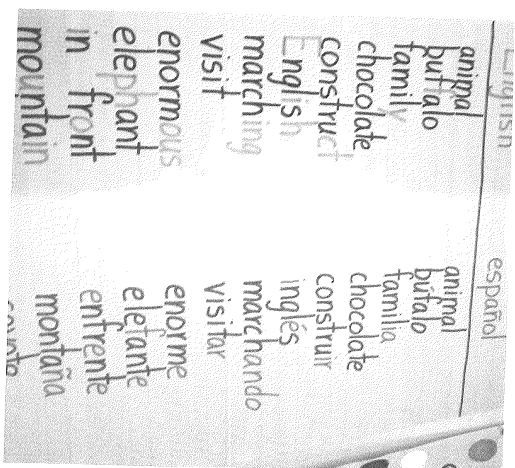 English español
animal animal
buffalo búfalo
family familia
chocolate chocolate
construct construir
English inglés
marching marchando
visit visitar
enormous enorme
elephant elefante
in front enfrente
mountain montaña